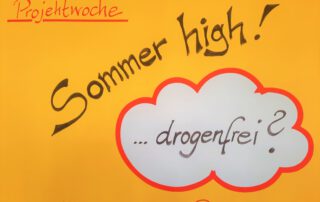 Projektwoche
Sommer high!
... drogenfrei?